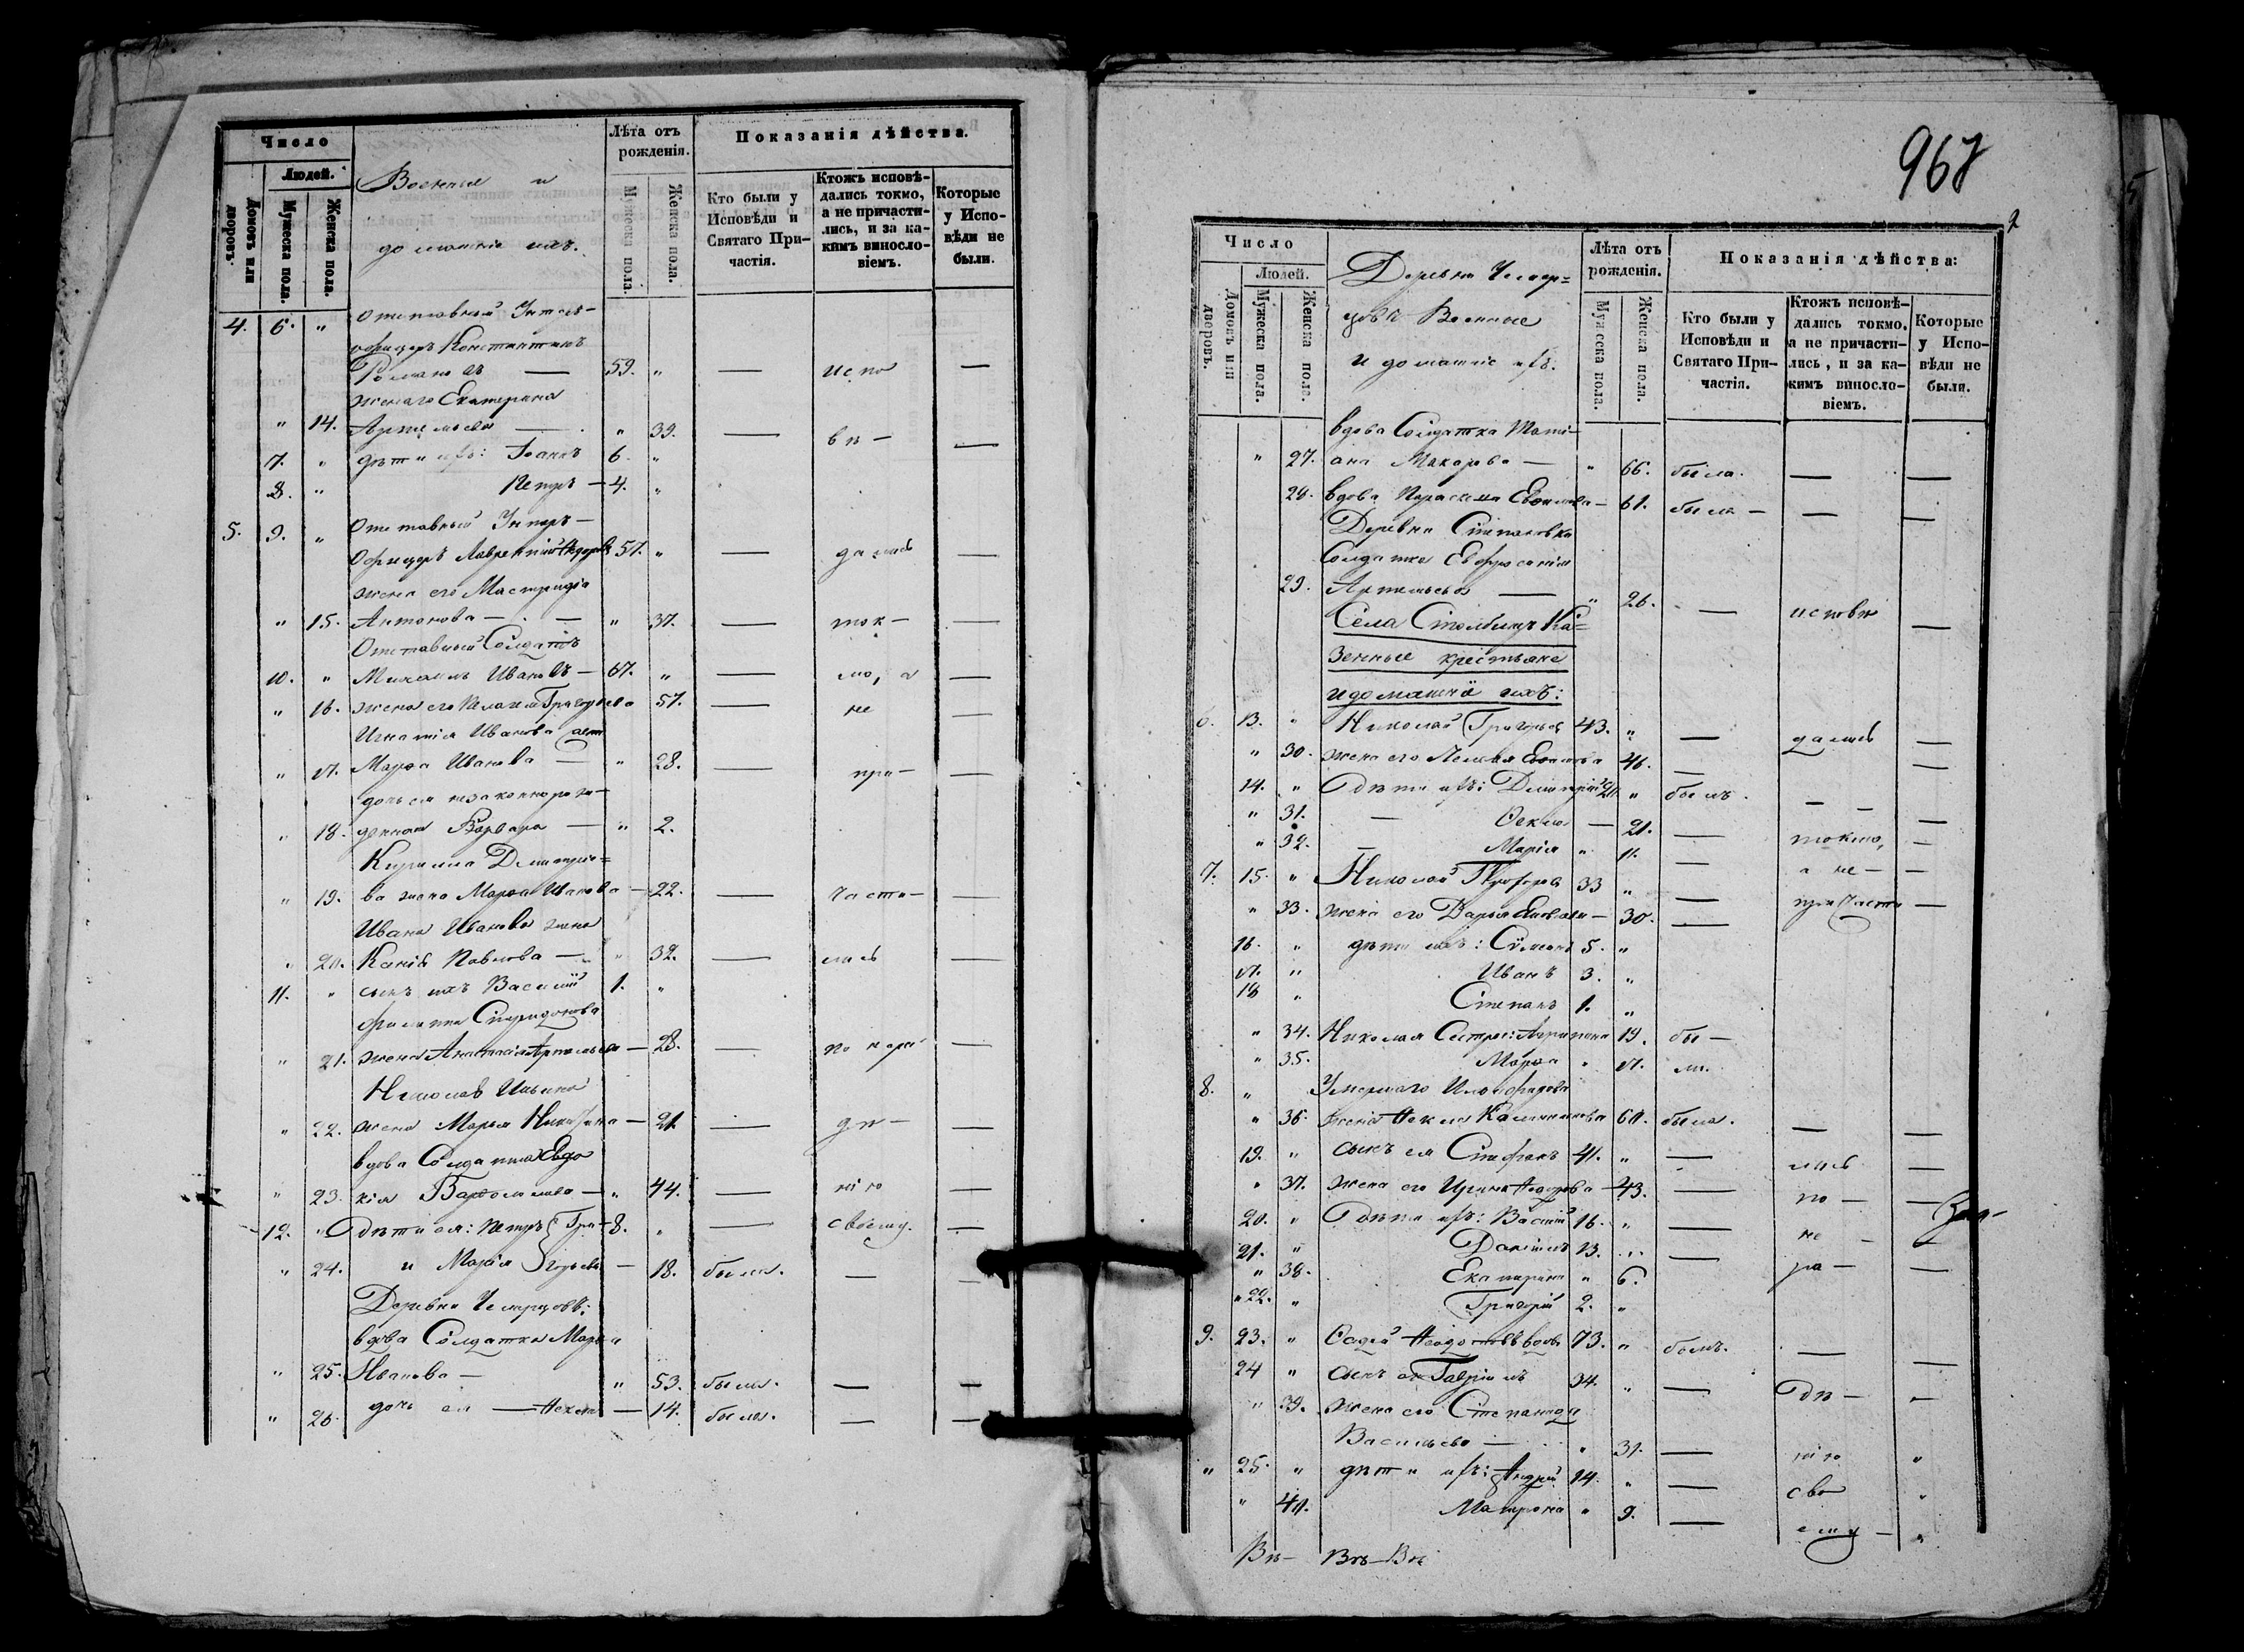 Число
Людей.
Домовъ или дворовъ.
Мужеска пола.
Женска пола.
Военныя и
домашніе ихъ.
Лѣта отъ рожденія.
Мужеска пола.
Женска пола.
Показанія дѣйства.
Кто были у Исповѣди и Святаго Причастія.
Ктожъ исповѣ-
дались токмо,
а не причасти-
лись, и за ка-
кимъ винословіемъ.
Которые
у Испо-
вѣди не
были.
4. 6. " Отставный Унтеръ-
офицеръ Константинъ
Романовъ — 59. " — испо —
жена его Екатерина
" 14. Артемьева — " 39. — вѣ — —
7. " дѣти ихъ: Іоаннъ 6. "
8. " Петръ — 4. "
5. 9. " Отставный Унтеръ-
Офицеръ Лаврентій Ѳедоровъ 57. " — дались —
жена его Мастридія
" 15. Антонова — " 37. — ток — —
Отставный Солдатъ
10. " Михаилъ Ивановъ — 67. " — мо, а —
" 16. жена его Григорьева 57. — не —
Игнатія Иванова
" 17. Марѳа Иванова — " 28. — при — —
дочь ея незаконнорож-
" 18. денная Варвара — " 2.
Кирилла Димитріе-
" 19. ва жена Марѳа Иванова — 22. — части — —
Ивана Иванова жена
" 20. Павлова — " 32. — лись —
11. " сынъ ихъ Василій 1. "
Филиппа Спиридонова
" 21. жена Анастасія Артемьева — 28. — по нера —
Николая Ильина
" 22. жена Марья Никитина — 21. — дѣ — —
вдова Солдатка Евдо
" 23. кія Варѳоломева — " 44. — нію —
12. " Дѣти ея: Петръ Гри- 8. " — своему. —
" 24. и Марія горьевы — 18. была. — —
Деревни Чемерцовъ:
вдова Солдатка Марѳа
" 25. Иванова — " 53. была. — —
" 26. дочь ея — — 14. была. — —
968
2
Число
Людей.
Домовъ или дворовъ.
Мужеска пола.
Женска пола.
Деревни Чемер=
цовъ Военные
и домашніе ихъ.
Лѣта отъ рожденія.
Мужеска пола.
Женска пола.
Показанія дѣйства:
Кто были у
Исповѣди и
Святаго При-
частія.
Ктожъ исповѣ-
дались токмо,
а не причасти-
лись, и за ка-
кимъ винословіемъ.
Которые
у Испо-
вѣди не
были.
вдова Солдатка Тати-
" 27. ана Макарова — " 66. была. — —
28. вдова Параскева Евѳимова — 61. была — — —
Деревни Степановки
Солдатка Евфросинія
29. Артемьева — " 26. — исповѣ —
Села Столбищъ Ка=
зенные крестьяне
и домашніе ихъ:
6. 13. " Николай Григорьевъ 43. " — дались —
" 30. жена его Евѳимова 46. — —
14. " Дѣти ихъ: Димитрій 20. " былъ. — — —
" 31. — Ѳекла — 21. — токмо, —
" 32. — Марія " 11. — а не — —
7. 15. " Николай Прохоровъ 33 " — причасти —
" 33. жена его Дарья Яковлева — 30. —
16. " дѣти ихъ: Сѵмеонъ 5. "
17. " Иванъ 3. "
18 " Степанъ 1. "
" 34. Николая Сестры: Агрипина 19. бы —
" 35. Марѳа " 17. ли.
8. " Умершаго Ильи Ѳедорова
" 36. жена Ѳекла Калинникова 60. была. — —
19. " сынъ ея Стефанъ 41. " — лись —
" 37. жена его Ирина Ѳедорова — 43. — по — —
20. " Дѣти ихъ: Василій 16. " — не — —
21. " Даніилъ 13. " — ра — —
" 38. Екатерина " 6.
" 22. " Григорій 2. "
9. 23. " вдовъ 73. " былъ. — —
24 " сынъ его Гавріилъ 34. " — дѣ — —
" 39. жена его Степанида
Васильева — " 31. — нію "
" 25. " дѣти ихъ: Андрей 14. " — сво "
" 40. Матрона " 9. — ему — "
Вѣ — Вѣ — Вѣ